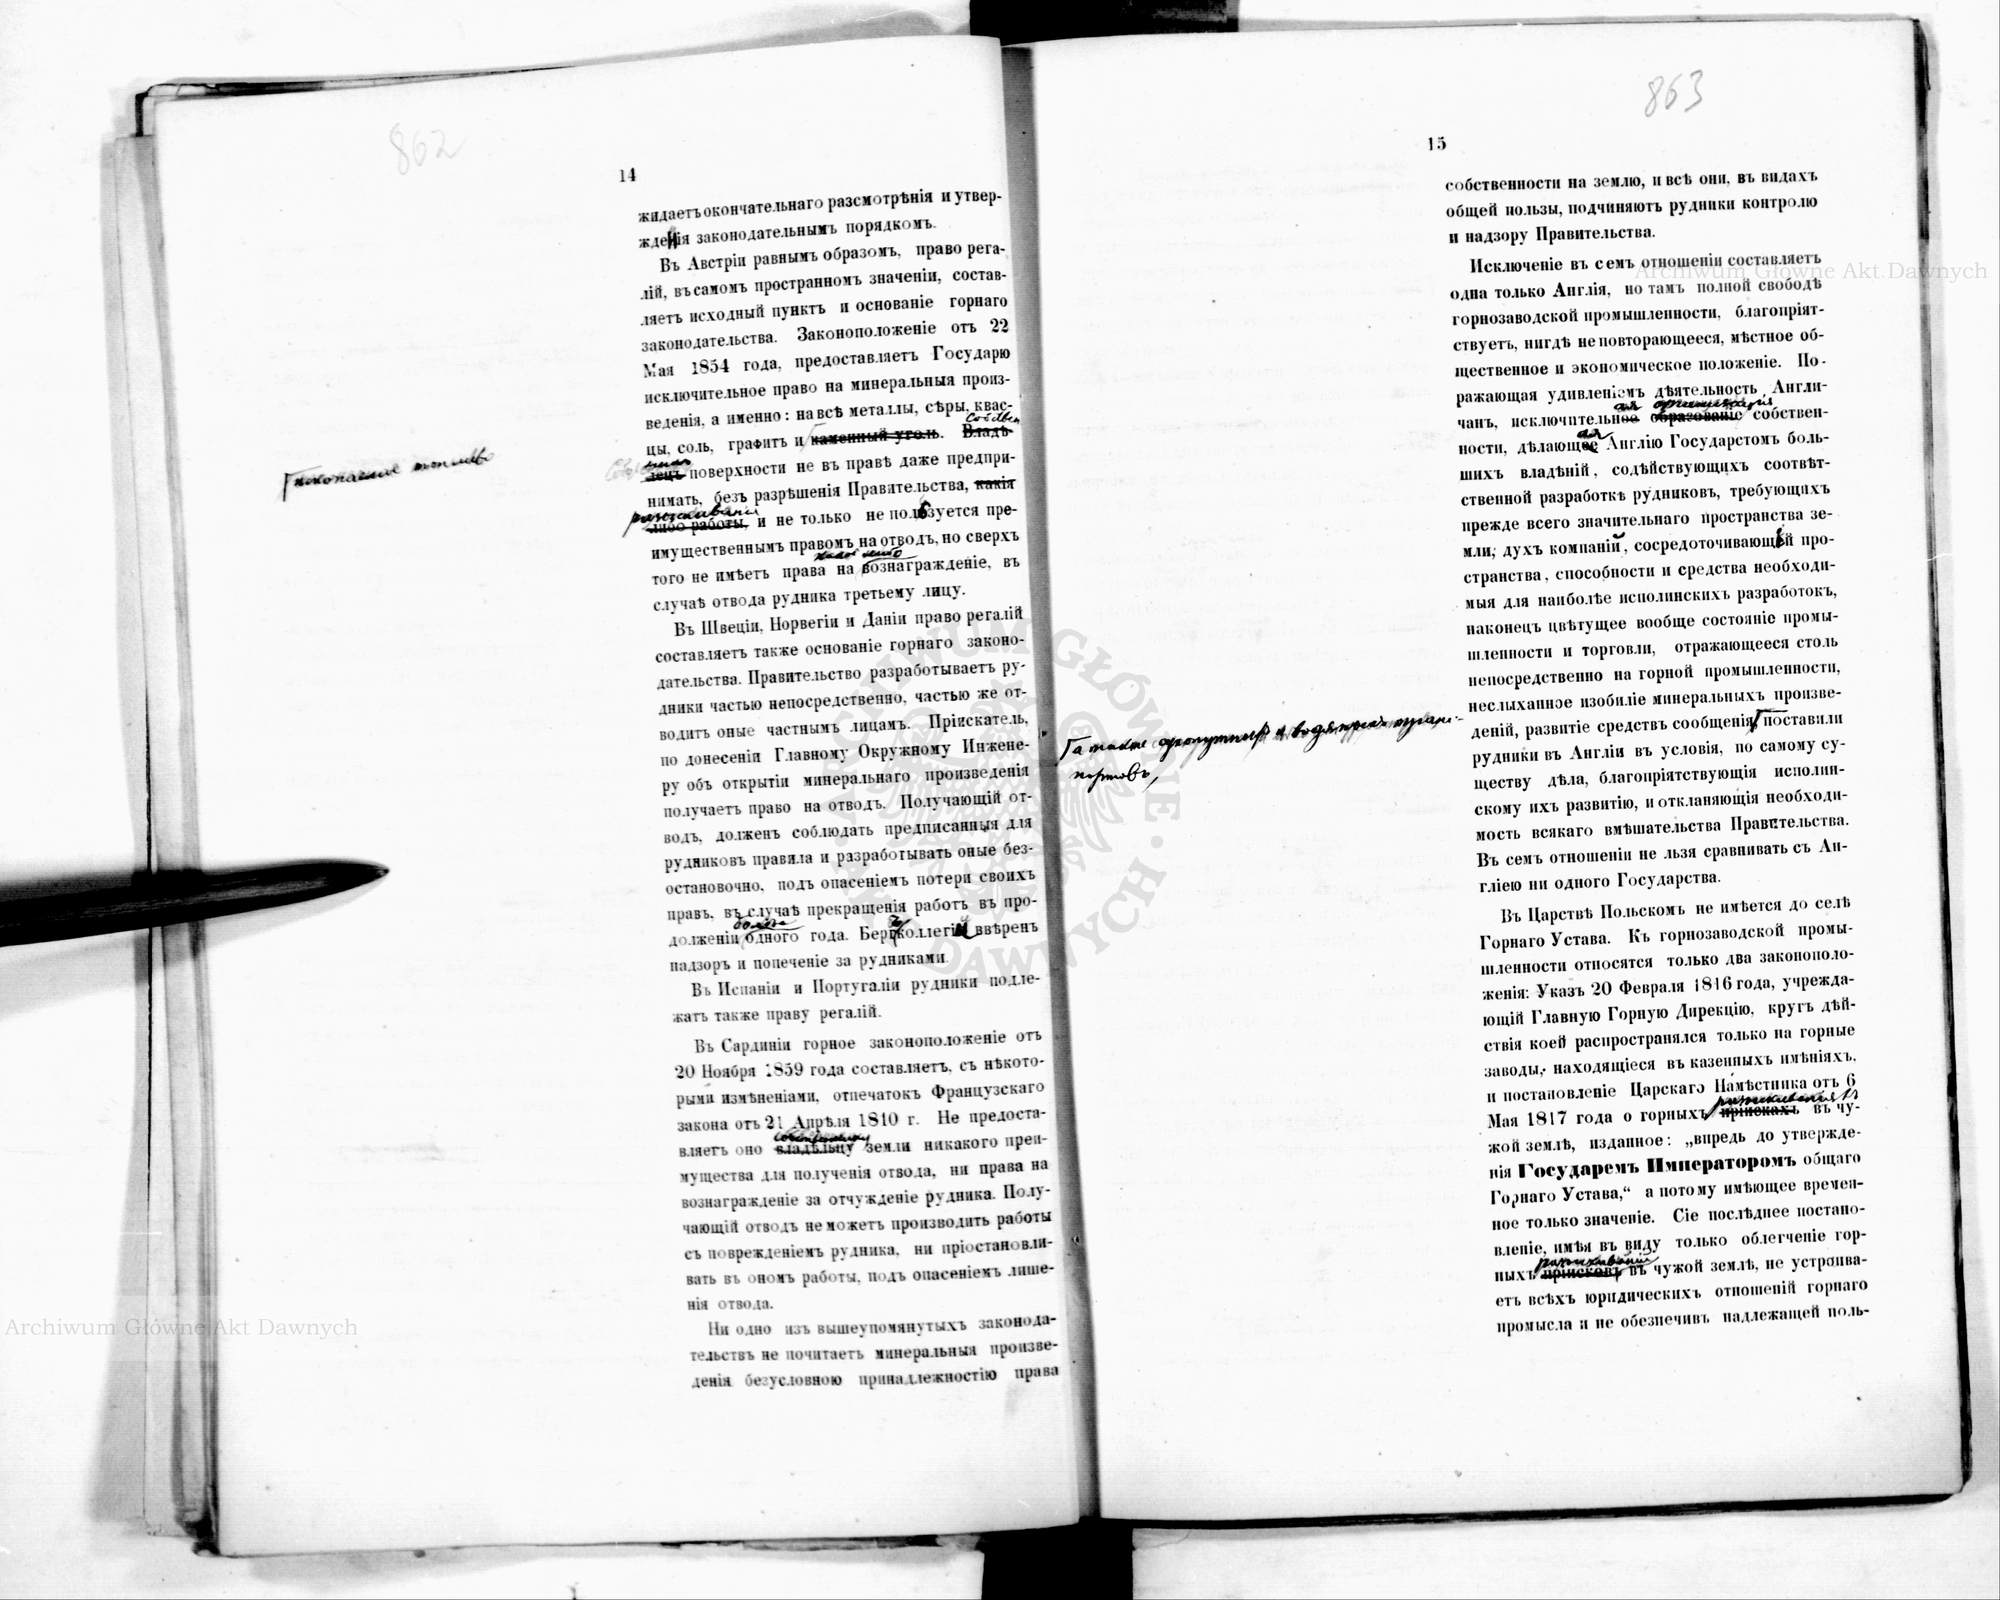 862
14
жидаетъ окончательнаго разсмотрѣнія и утвер-
жденія законодательнымъ порядкомъ.
Въ Австріи равнымъ образомъ, право рега-
лій, въ самомъ пространномъ значеніи, состав-
ляетъ исходный пунктъ и основаніе горнаго
законодательства. Законоположеніе отъ 22
Мая 1854 года, предоставляетъ Государю
исключительное право на минеральныя произ-
веденія, а именно: на всѣ металлы, сѣры, квас-
цы, соль, графитъ и каменный уголь. Владѣ-
лецъ поверхности не въ правѣ даже предпри-
нимать, безъ разрѣшенія Правительства, какія
либо работы, и не только не пользуется пре-
имущественнымъ правомъ на отводъ, но сверхъ
того не имѣетъ права на какое либо вознагражденіе, въ
случаѣ отвода рудника третьему лицу.
Въ Швеціи, Норвегіи и Даніи право регалій
составляетъ также основаніе горнаго законо-
дательства. Правительство разработываетъ ру-
дники частью непосредственно, частью же от-
водитъ оные частнымъ лицамъ. Пріискатель,
по донесеніи Главному Окружному Инжене-
ру объ открытіи минеральнаго произведенія
получаетъ право на отводъ. Получающій от-
водъ, долженъ соблюдать предписанныя для
рудниковъ правила и разработывать оные без-
остановочно, подъ опасеніемъ потери своихъ
правъ, въ случаѣ прекращенія работъ въ про-
долженіи болѣе одного года. Бергколлегіи ввѣренъ
надзоръ и попеченіе за рудниками.
Въ Испаніи и Португаліи рудники подле-
жатъ также праву регалій.
Въ Сардиніи горное законоположеніе отъ
20 Ноября 1859 года составляетъ, съ нѣкото-
рыми измѣненіями, отпечатокъ Французскаго
закона отъ 21 Апрѣля 1810 г. Не предоста-
вляетъ оно владѣльцу земли никакого преи-
мущества для полученія отвода, ни права на
вознагражденіе за отчужденіе рудника. Полу-
чающій отводъ не можетъ производить работы
съ поврежденіемъ рудника, ни пріостановли-
вать въ ономъ работы, подъ опасеніемъ лише-
нія отвода.
Ни одно изъ вышеупомянутыхъ законода-
тельствъ не почитаетъ минеральныя произве-
денія безусловною принадлежностію права
ископаемое топливо
863
15
собственности на землю, и всѣ они, въ видахъ
общей пользы, подчиняютъ рудники контролю
и надзору Правительства.
Исключеніе въ семъ отношеніи составляетъ
одна только Англія, но тамъ полной свободѣ
горнозаводской промышленности, благопріят-
ствуетъ, нигдѣ не повторяющееся, мѣстное об-
щественное и экономическое положеніе. По-
ражающая удивленіемъ дѣятельность Англи-
чанъ, исключительное образованіе собствен-
ности, дѣлающее Англію Государстомъ боль-
шихъ владѣній, содѣйствующихъ соотвѣт-
ственной разработкѣ рудниковъ, требующихъ
прежде всего значительнаго пространства зе-
мли; духъ компаній, сосредоточивающій про-
странства, способности и средства необходи-
мыя для наиболѣе исполинскихъ разработокъ,
наконецъ цвѣтущее вообще состояніе промы-
шленности и торговли, отражающееся столь
непосредственно на горной промышленности,
неслыханное изобиліе минеральныхъ произве-
деній, развитіе средствъ сообщенія, поставили
рудники въ Англіи въ условія, по самому су-
ществу дѣла, благопріятствующія исполин-
скому ихъ развитію, и откланяющія необходи-
мость всякаго вмѣшательства Правительства.
Въ семъ отношеніи не льзя сравнивать съ Ан-
гліею ни одного Государства.
Въ Царствѣ Польскомъ не имѣется до селѣ
Горнаго Устава. Къ горнозаводской промы-
шленности относятся только два законополо-
женія: Указъ 20 Февраля 1816 года, учрежда-
ющій Главную Горную Дирекцію, кругъ дѣй-
ствія коей распространялся только на горные
заводы, находящіеся въ казенныхъ имѣніяхъ,
и постановленіе Царскаго Намѣстника отъ 6
Мая 1817 года о горныхъ пріискахъ въ чу-
жой землѣ, изданное: „впредь до утвержде-
нія Государемъ Императоромъ общаго
Горнаго Устава,“ а потому имѣющее времен-
ное только значеніе. Сіе послѣднее постано-
вленіе, имѣя въ виду только облегченіе гор-
ныхъ пріисковъ въ чужой землѣ, не устроива-
етъ всѣхъ юридическихъ отношеній горнаго
промысла и не обезпечивъ надлежащей поль-
а также
Archiwum Główne Akt Dawnych
Archiwum Główne Akt Dawnych
ARCHIWUM GŁÓWNE AKT DAWNYCH